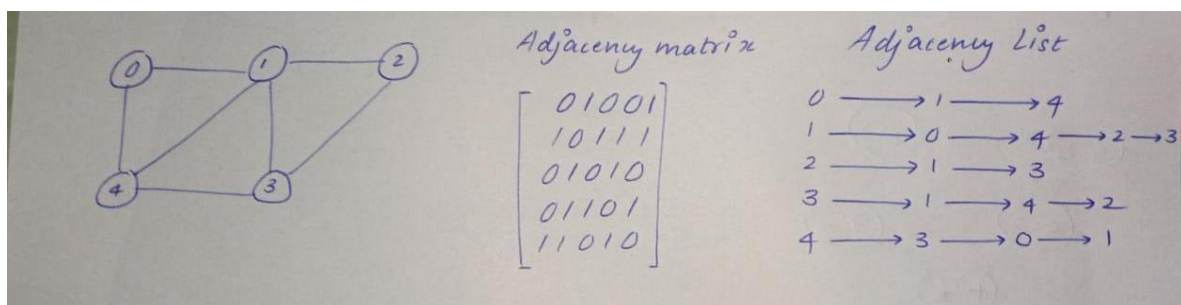 0 1 2
4 3
Adjacency matrix
01001
10111
01010
01101
11010
Adjacency List
0 → 1 → 4
1 → 0 → 4 → 2 → 3
2 → 1 → 3
3 → 1 → 4 → 2
4 → 3 → 0 → 1